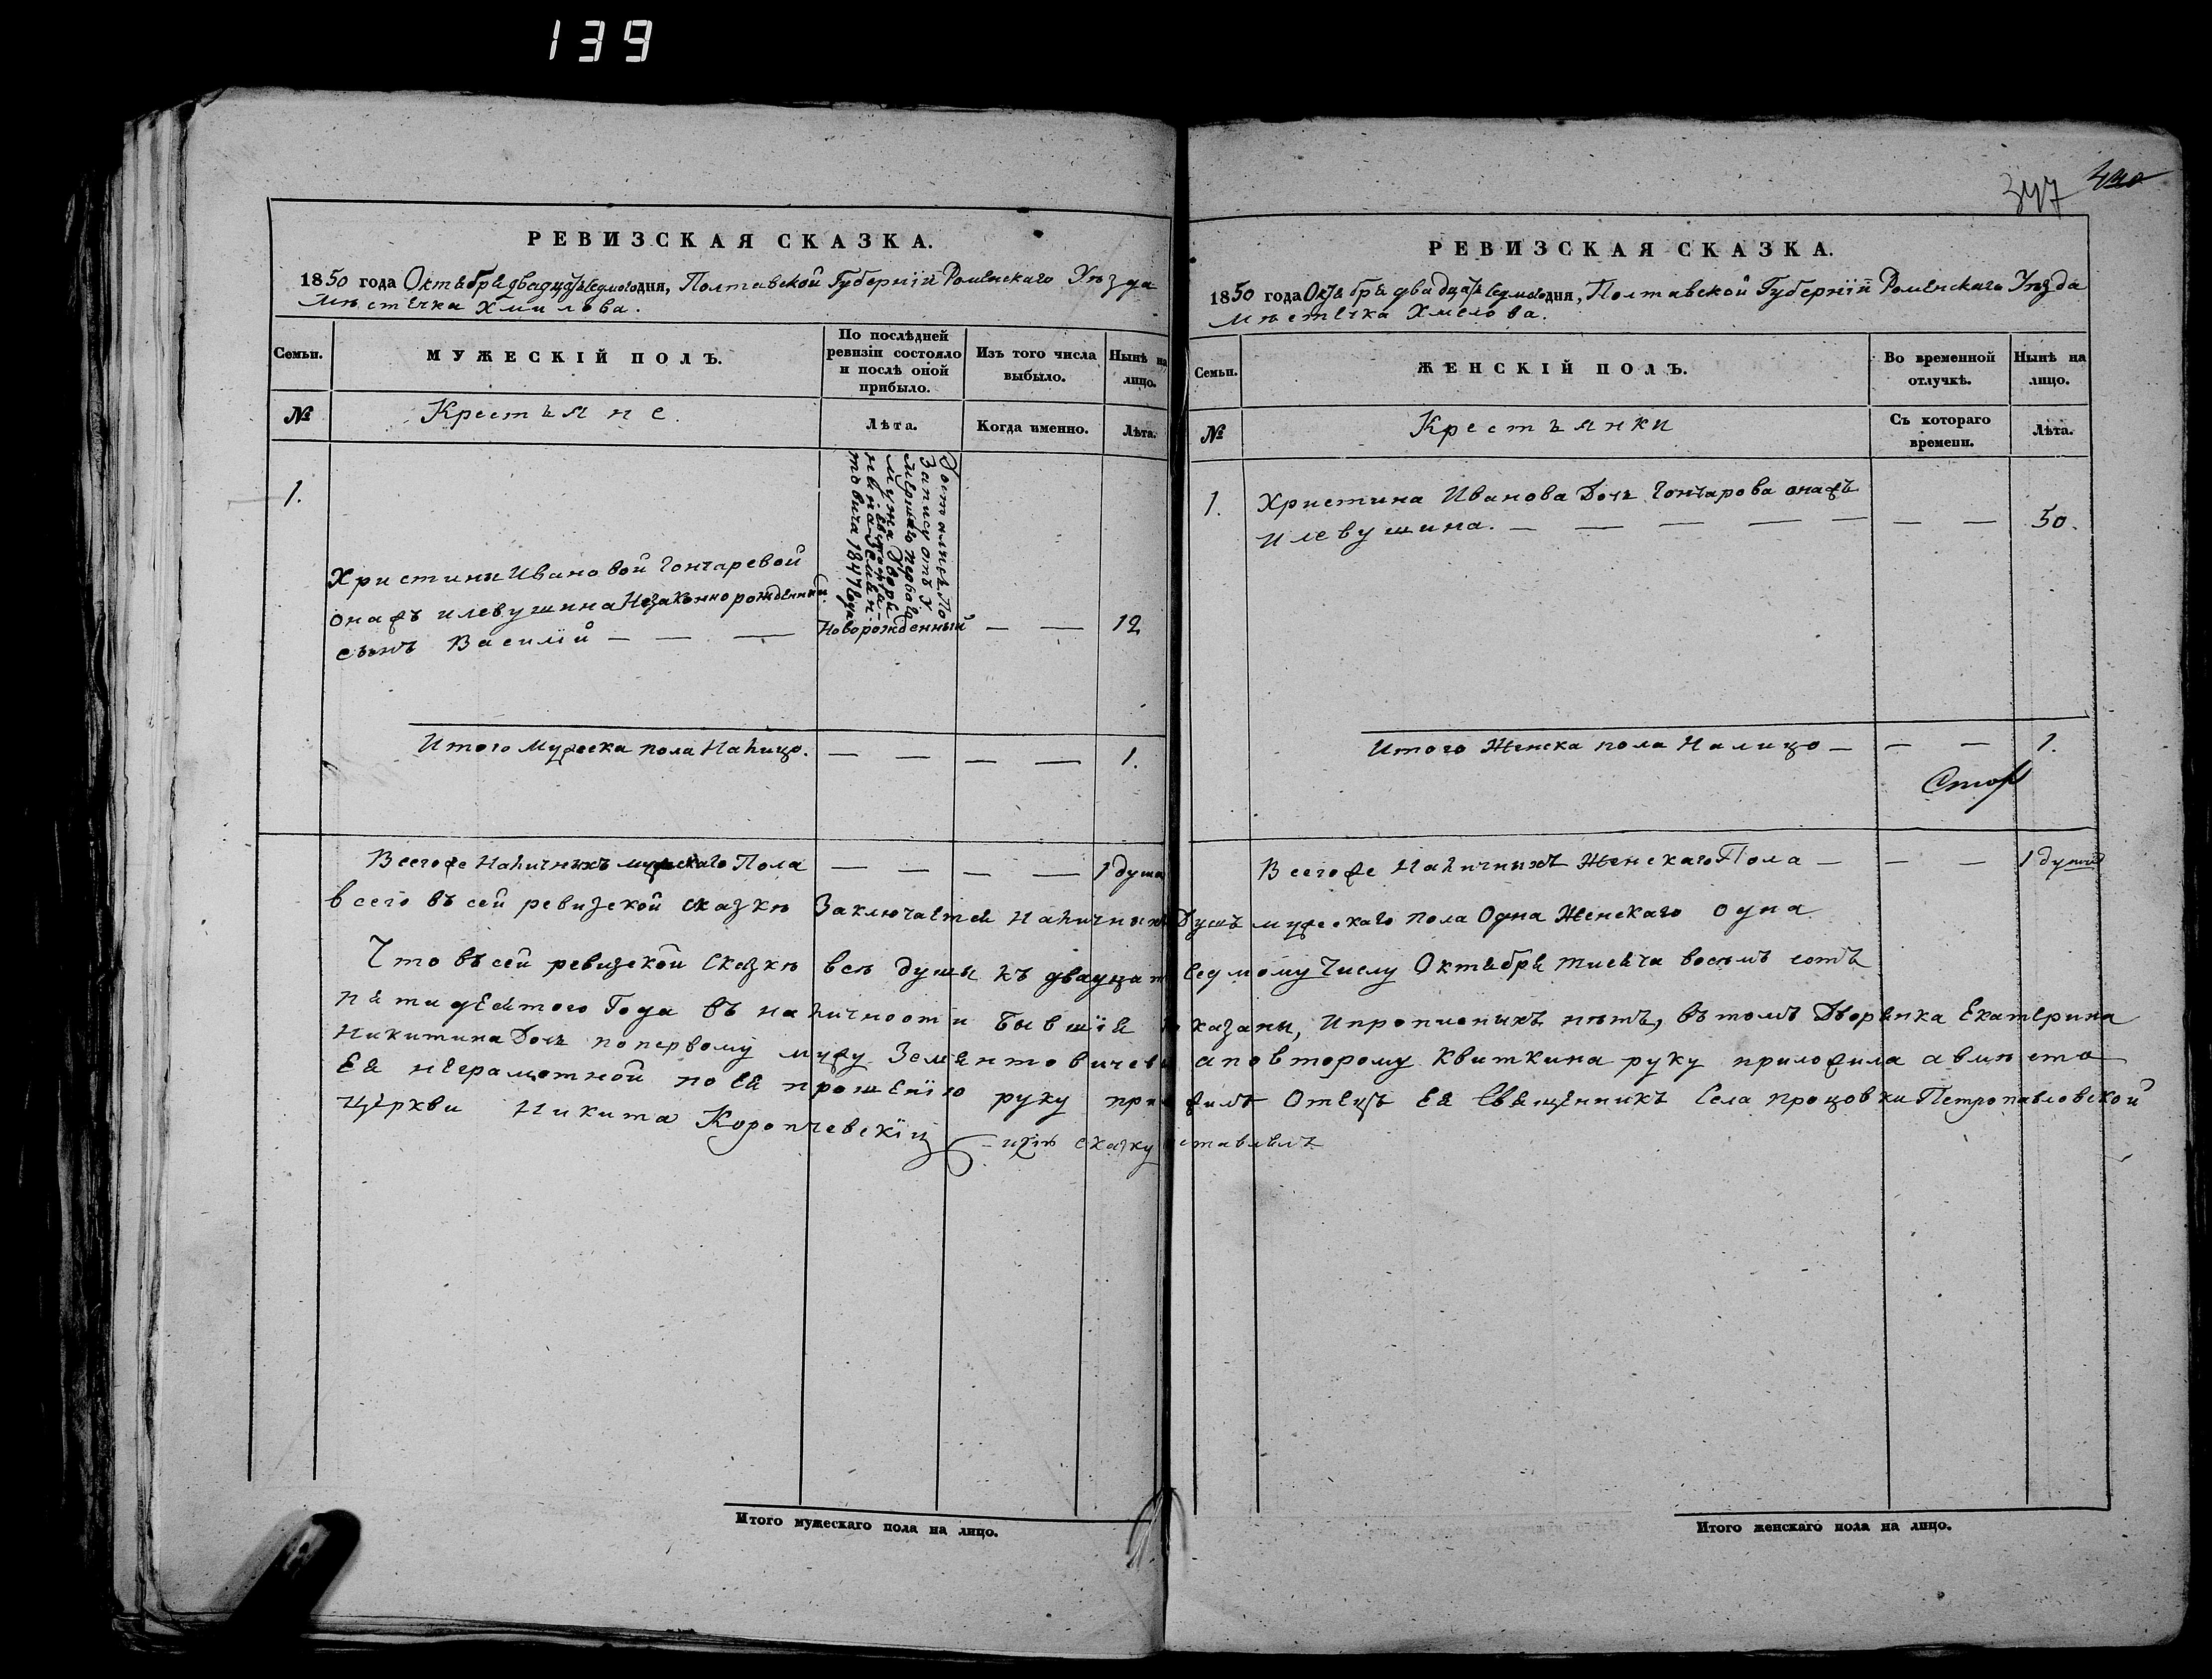 139
347
РЕВИЗСКАЯ СКАЗКА.
1850 года Октября двадцать седмого дня, Полтавской Губерніи Роменскаго Уѣзда
Мѣстечка Хмилева.
Семьи.
МУЖЕСКІЙ ПОЛЪ.
По послѣдней ревизіи состояло и послѣ оной прибыло.
Изъ того числа выбыло.
Нынѣ на лицо.
№
Крестьяне.
Лѣта.
Когда именно.
Лѣта.
1.
Досталися По
Запису отъ У
мершаго перваго
мужа Дворя
нина
товича 1847 года
Христины Ивановой Гончаревой
онажъ илевушина Незаконнорожденный
сынъ Василій — — — Новорожденный — — 12
Итого Мужеска пола Налицо. — — — — 1.
Всегоже Наличныхъ мужескаго Пола — — — — 1 душа
РЕВИЗСКАЯ СКАЗКА.
1850 года Октября двадцать седмого дня, Полтавской Губерніи Роменскаго Уѣзда
Мѣстечка Хмелова.
Семьи.
ЖЕНСКІЙ ПОЛЪ.
Во временной отлучкѣ.
Нынѣ на лицо.
№
Крестьянки
Съ котораго времени.
Лѣта.
1. Христина Иванова Дочь Гончарова онажъ
илевушина. — — — — — — 50.
Итого Женска пола Налицо — — — 1.
Всегоже Наличныхъ Женскаго Пола — — — 1 душа
всего въ сей ревизской сказкѣ Заключается Наличныхъ Душъ мужескаго пола Одна Женскаго одна.
Что въ сей ревизской Сказкѣ всѣ души къ двадцать седмому Числу Октября тисяча восемъ сотъ
пятидесятого Года въ наличности бывшія показаны, и прописныхъ нѣтъ, въ томъ Дворянка Екатерина
Никитина Дочь попервому мужу Земянтовичева а повторому Квиткина руку приложила а вместо
Ея неграмотной по ея прошенію руку приложилъ Отецъ Ея Священникъ Села процовки Петропавловской
Церкви Никита Коропчевскій сказку составлялъ
Итого мужескаго пола на лицо.
Итого женскаго пола на лицо.